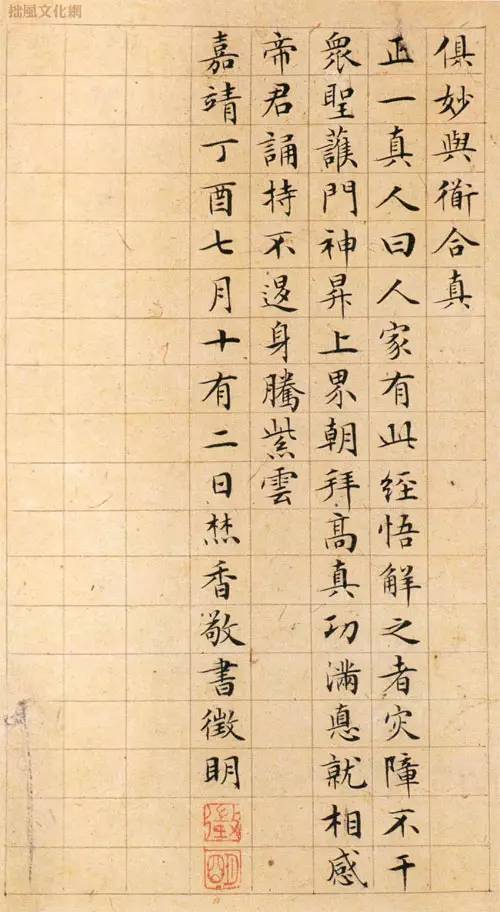 拙風文化網
俱妙與衜合真
正一真人曰人家有此經悟解之者灾障不干
衆聖護門神昇上界朝拜高真功滿惪就相感
帝君誦持不退身騰紫雲
嘉靖丁酉七月十有二日焚香敬書徵明
徵
明